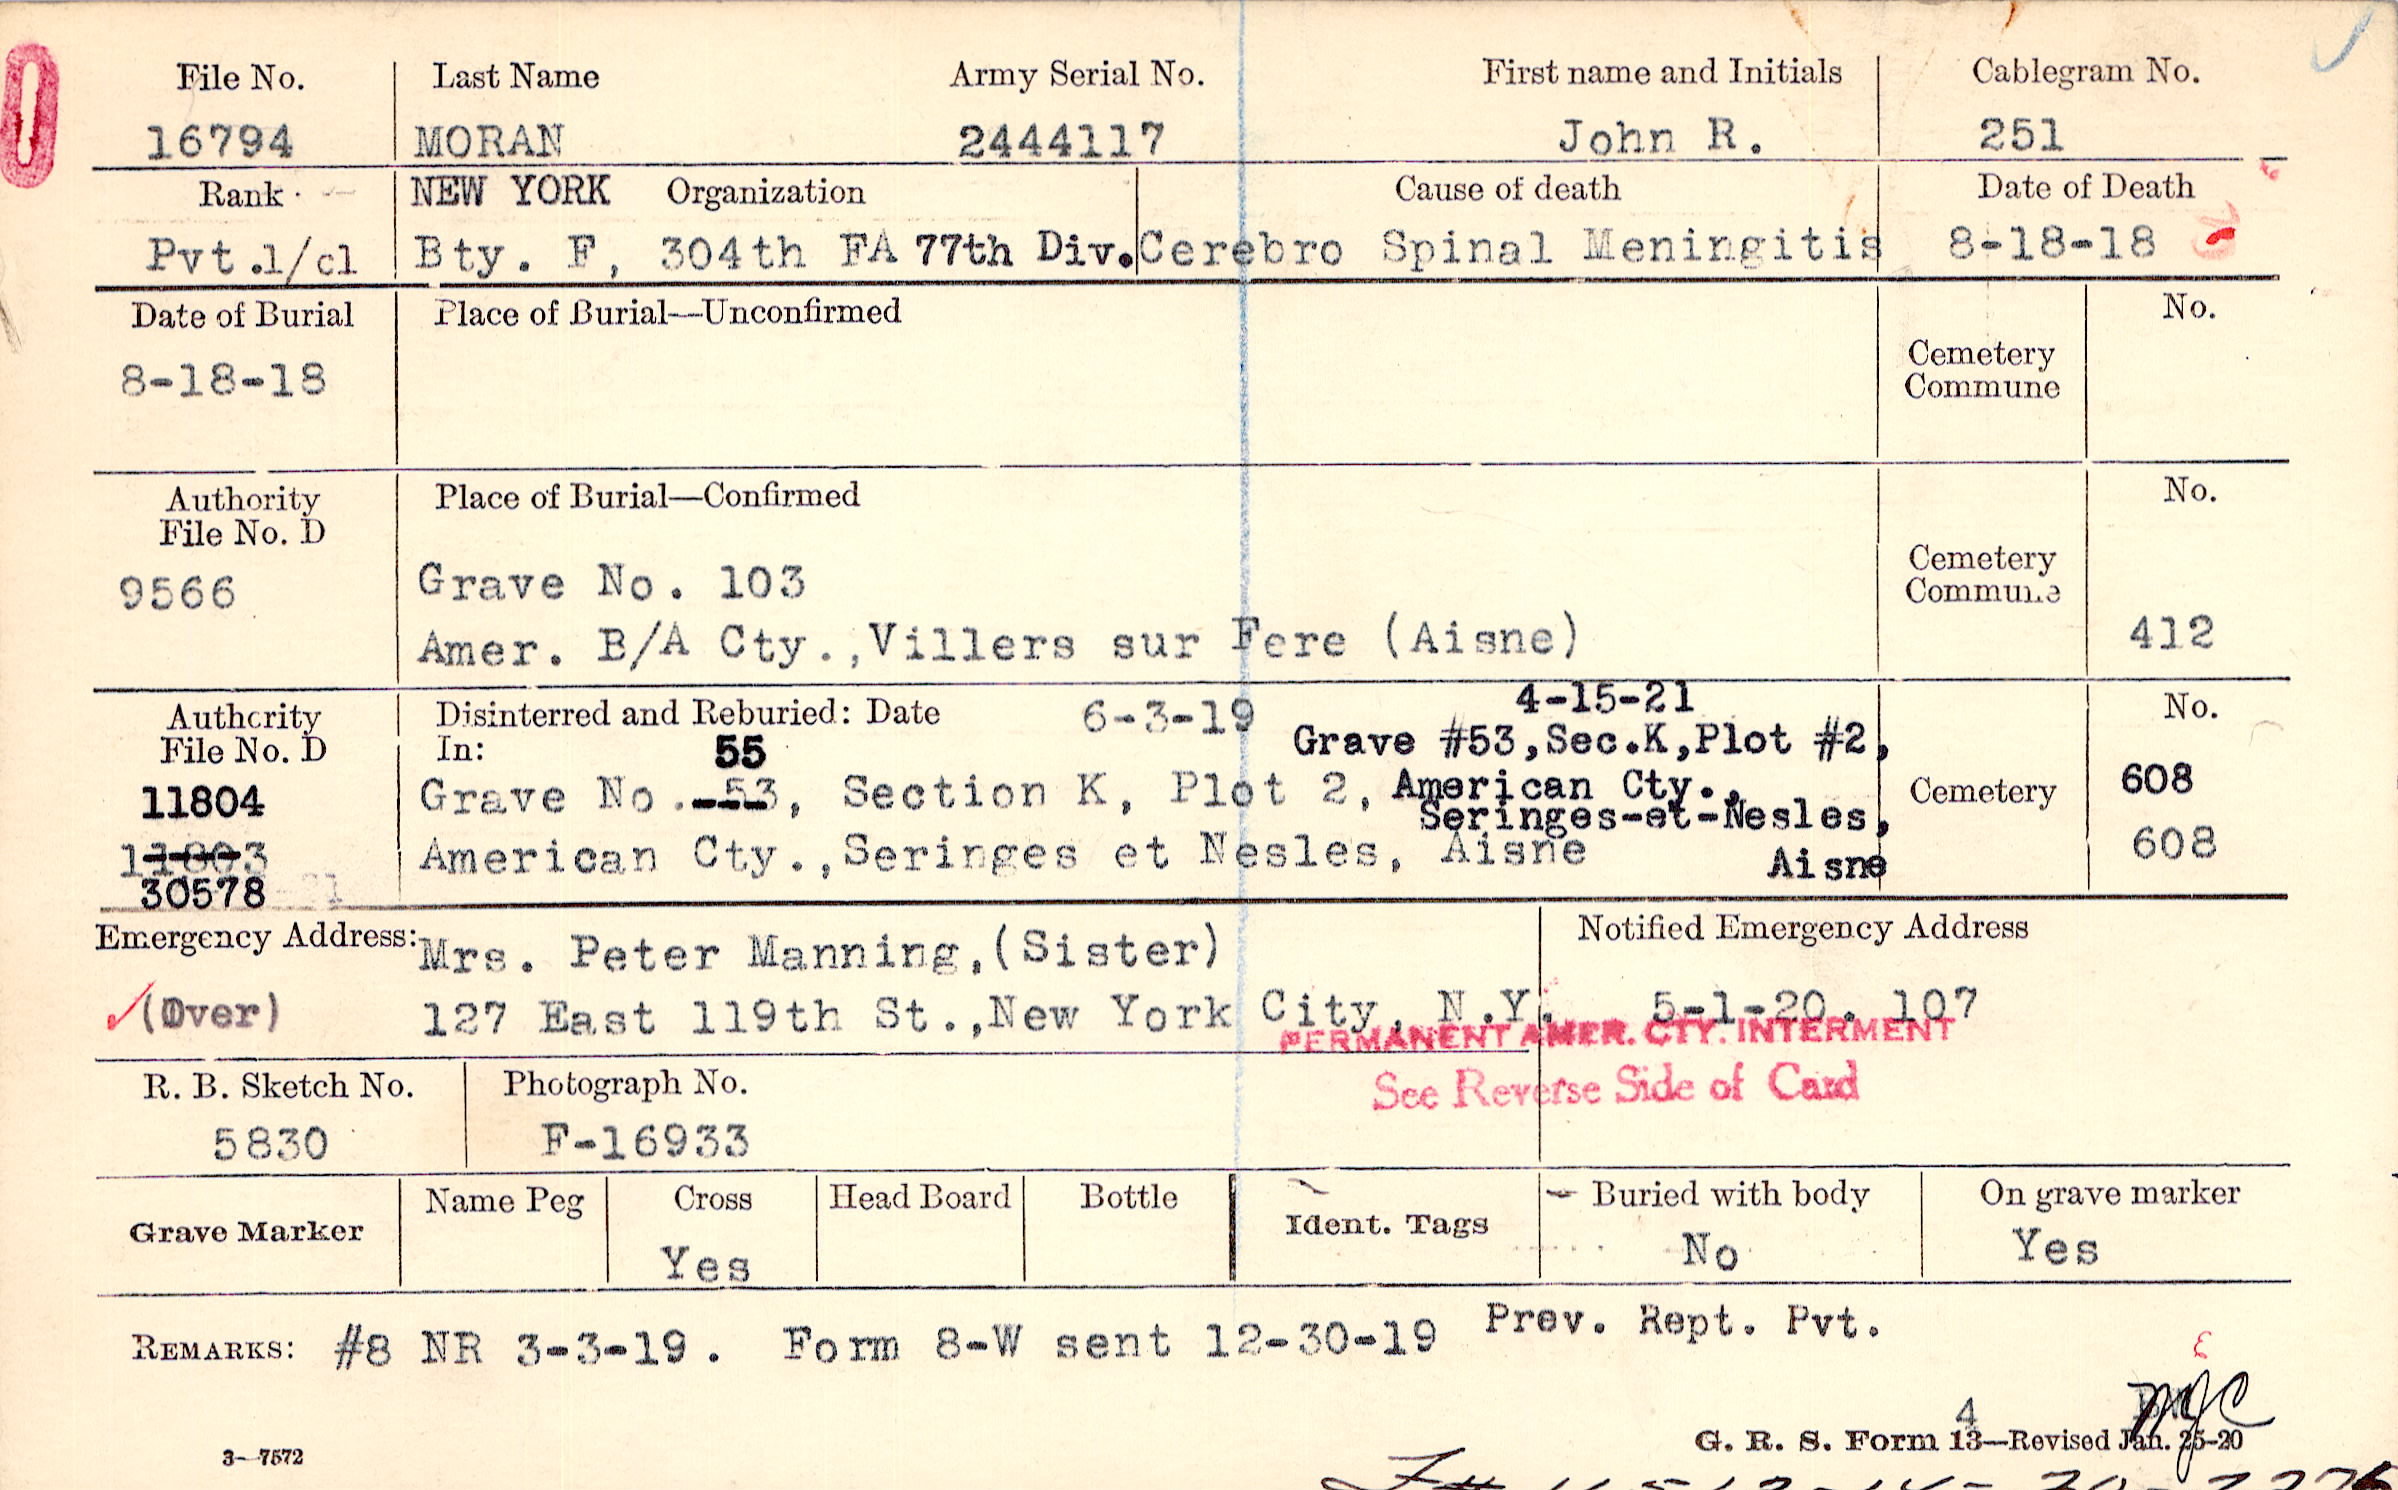 File No. Last Name Army Serial No. First name and Initials Cablegram No.
16794 MORAN 2444117 John R. 251
Rank NEW YORK Organization Cause of death Date of Death
Pvt.1/cl Bty. F, 304th FA 77th Div. Cerebro Spinal Meningitis 8-18-18
Date of Burial Place of Burial—Unconfirmed No.
Cemetery
Commune
8-18-18
Authority Place of Burial—Confirmed No.
File No. D
Cemetery
Commune
9566 Grave No. 103
Amer. B/A Cty.,Villers sur Fere (Aisne) 412
4-15-21
Authority Disinterred and Reburied: Date 6-3-19 No.
File No. D In: 55 Grave #53,Sec.K,Plot #2,
11804 Grave No. 53, Section K, Plot 2, American Cty., Cemetery 608
Seringes-et-Nesles,
11803 American Cty.,Seringes et Nesles, Aisne Aisne 608
30578
Emergency Address: Mrs. Peter Manning,(Sister) Notified Emergency Address
(Over) 127 East 119th St.,New York City, N.Y. 5-1-20. 107
PERMANENT AMER. CTY. INTERMENT
See Reverse Side of Card
R. B. Sketch No. Photograph No.
5830 F-16933
Grave Marker Name Peg Cross Head Board Bottle Ident. Tags Buried with body On grave marker
Yes No Yes
REMARKS: #8 NR 3-3-19. Form 8-W sent 12-30-19 Prev. Rept. Pvt.
4
3—7572 G. R. S. Form 13—Revised Jan. 25-20